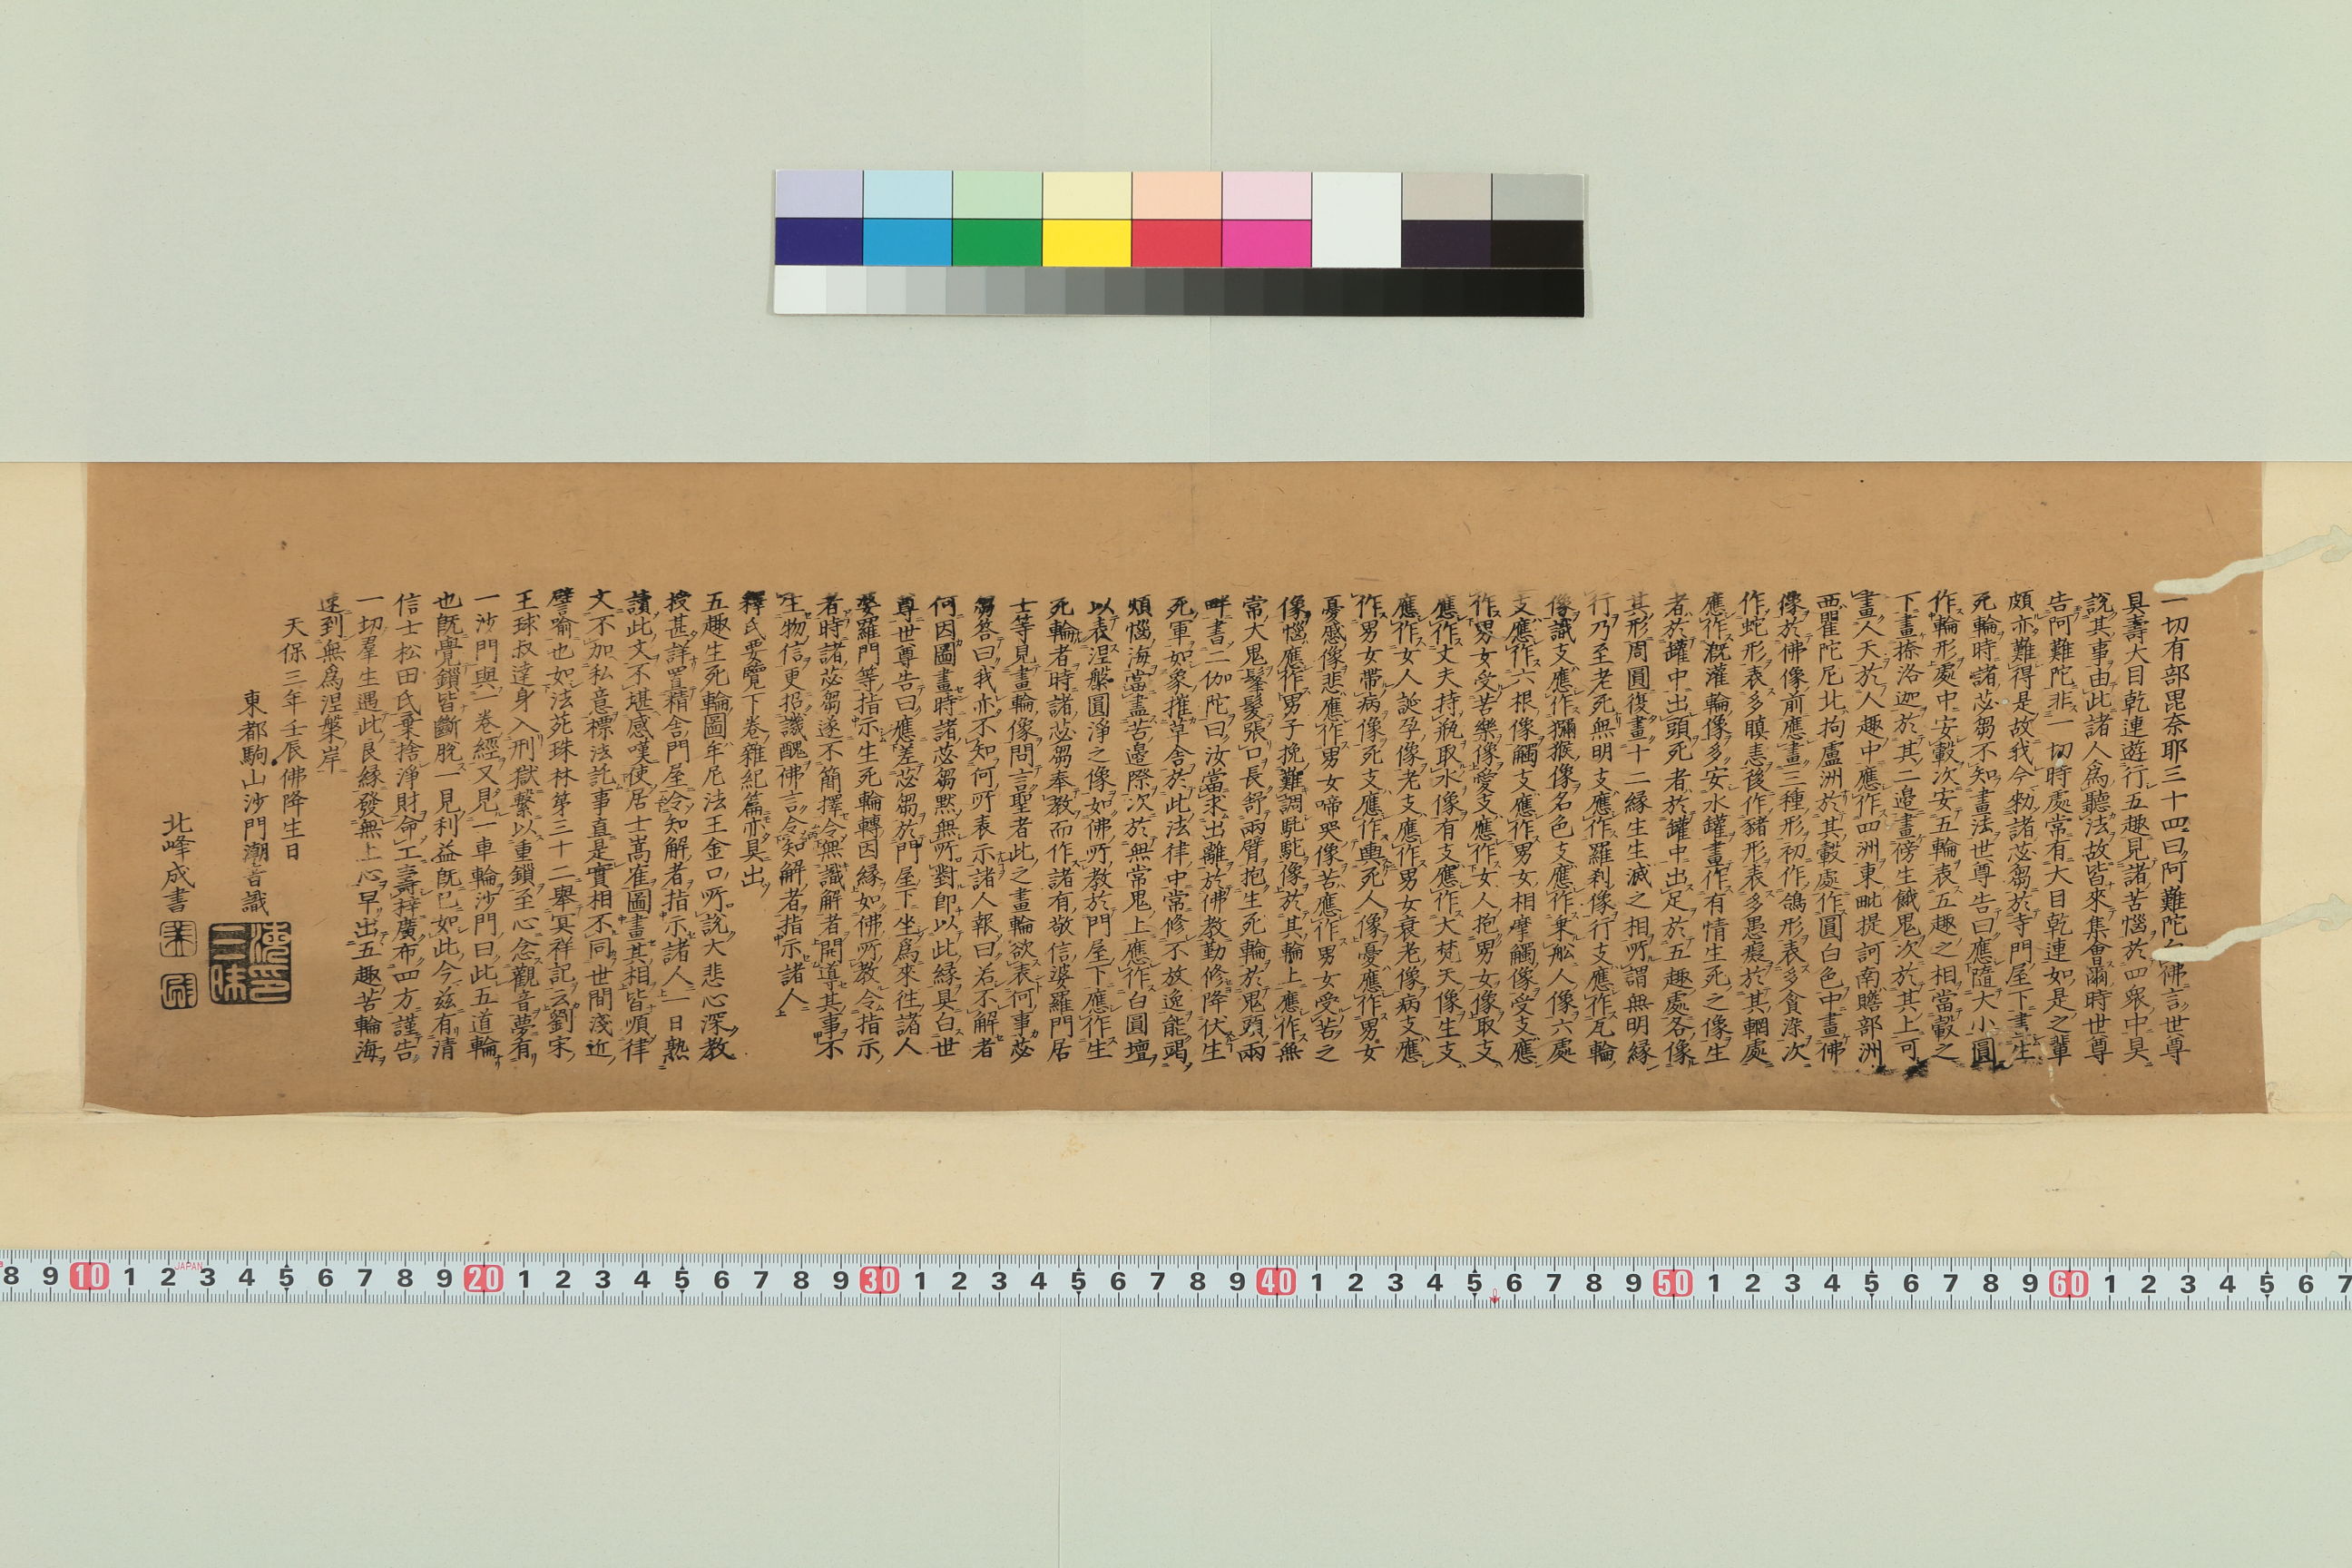 一切有部毘奈耶三十四曰阿難陀白佛言世尊
具壽大目乾連遊行五趣見諸苦惱於四衆中具
說其事由此諸人爲聽法故皆來集會爾時世尊
告阿難陀非一切時處常有大目乾連如是之輩
頗亦難得是故我今勑諸苾芻於寺門屋下畫生
死輪時諸苾芻不知畫法世尊告曰應隨大小圓
作輪形處中安轂次安五輪表五趣之相當轂之
下畫捺洛迦於其二邊畫傍生餓鬼次於其上可
畫人天於人趣中應作四洲東毗提訶南贍部洲
西瞿陀尼北拘盧洲於其轂處作圓白色中畫佛
像於佛像前應畫三種形初作鴿形表多貪染次
作蛇形表多瞋恚後作豬形表多愚癡於其輞處
應作溉灌輪像多安水罐畫作有情生死之像生
者於罐中出頭死者於罐中出足於五趣處各像
其形周圓復畫十二緣生生滅之相所謂無明緣
行乃至老死無明支應作羅刹像行支應作瓦輪
像識支應作獼猴像名色支應作乗舩人像六處
支應作六根像觸支應作男女相摩觸像受支應
作男女受苦樂像愛支應作女人抱男女像取支
應作丈夫持瓶取水像有支應作大梵天像生支
應作女人誕孕像老支應作男女衰老像病支應
作男女帶病像死支應作輿死人像憂應作男女
憂慼像悲應作男女啼哭像苦應作男女受苦之
像惱應作男子挽難調駝駝像於其輪上應作無
常大鬼髼髮張口長舒兩臂抱生死輪於鬼頭兩
畔書二伽陀曰汝當求出離於佛教勤修降伏生
死軍如象摧草舍於此法律中常修不放逸能竭
煩惱海當盡苦邊際次於無常鬼上應作白圓壇
以表涅槃圓淨之像如佛所教於門屋下應作生
死輪者時諸苾芻奉教而作諸有敬信婆羅門居
士等見畫輪像問言聖者此之畫輪欲表何事苾
芻答曰我亦不知何所表示諸人報曰若不解者
何因圖畫時諸苾芻黙無所對卽以此緣具白世
尊世尊告曰應差苾芻於門屋下坐爲來往諸人
婆羅門等指示生死輪轉因緣如佛所教令指示
者時諸苾芻遂不簡擇令無識解者開導其事不
生物信更招譏醜佛言令知解者指示諸人
釋氏要覽下卷雜紀篇亦具出
五趣生死輪圖牟尼法王金口所說大悲心深教
授甚詳置精舍門屋令知解者指示諸人一日熟
讀此文不堪感嘆使居士嵩崔圖畫其相皆順律
文不加私意標法託事直是實相不同世間淺近
譬喩也如法苑珠林第三十二舉冥祥記云劉宋
王球叔達身入刑獄繫以重鎖至心念觀音夢有
一沙門與一卷經又見一車輪沙門曰此五道輪
也旣覺鎖皆斷脫一見利益旣已如此今茲有清
信士松田氏棄捨淨財命工壽梓廣布四方謹告
一切羣生遇此良緣發無上心早出五趣苦輪海
速到無爲涅槃岸
天保三年壬辰佛降生日
東都駒山沙門潮音識
北峰成書
海印
三昧